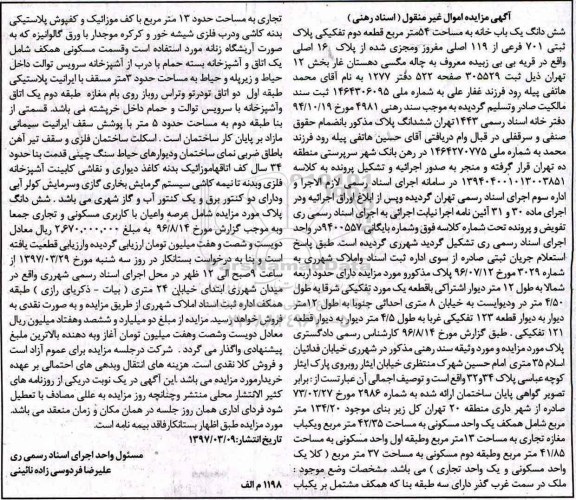 آگهی مزایده اموال غیر منقول ( اسناد رهنی )
شش دانگ یک باب خانه به مساحت ۵۴متر مربع قطعه دوم تفکیکی پلاک
ثبتی ۷۰۱ فرعی از ۱۱۹ اصلی مفروز ومجزی شده از پلاک ۱۶ اصلی
واقع در قریه بی بی زبیده معروف به چاله مگسی دهستان غار بخش ۱۲
تهران ذیل ثبت ۳۰۵۵۲۹ صفحه ۵۲۲ دفتر ۱۲۷۷ به نام آقای محمد
هاتفی پیله رود فرزند غفار علی به شماره ملی ۱۴۶۴۳۰۶۰۹۵ ثبت سند
مالکیت صادر وتسلیم گردیده به موجب سند رهنی ۴۹۸۱ مورخ ۹۴/۱۰/۱۹
دفتر خانه اسناد رسمی ۱۴۴۲ تهران ششدانگ پلاک مذکور بانضمام حقوق
صنفی و سرقفلی در قبال وام دریافتی آقای حسین هاتفی پیله رود فرزند
محمد به شماره ملی ۱۴۶۴۲۷۰۷۷۵ در رهن بانک شهر سرپرستی منطقه
ده تهران قرار گرفته و منجر به صدور اجرائیه و تشکیل پرونده به کلاسه
۱۳۹۴۰۴۰۰۱۰۱۳۰۰۳۸۵۱ در سامانه اجرای اسناد رسمی لازم الاجرا و
اداره سوم اجرای اسناد رسمی تهران گردیده وپس از ابلاغ اوراق اجرائیه ودر
اجرای ماده ۳۰ و ۳۱ آئین نامه اجرا نیابت اجرائی به اجرای اسناد رسمی ری
تفویض و پرونده تحت شماره کلاسه فوق وشماره بایگانی ۹۴۰۰۵۵۷در واحد
اجرای اسناد رسمی ری تشکیل گردید شهرری گردیده است. طبق پاسخ
استعلام جریان ثبتی صادره از سوی اداره ثبت اسناد واملاک شهرری به
شماره ۳۰۲۹ مورخ ۹۶/۰۷/۱۲ پلاک مذکورو مورد مزایده دارای حدود اربعه
شمالا به طول ۱۲ متر دیوار اشتراکی باقطعه یک مورد تفکیکی شرقا به طول
۴/۵۰ متر در ودیواریست به خیابان ۸ متری احداثی جنوبا به طول ۱۲متر
دیوار به دیوار قطعه ۱۲۳ تفکیکی غربا به طول ۴/۵ متر دیوار به دیوار قطعه
۱۲۱ تفکیکی . طبق گزارش مورخ ۹۶/۸/۱۴ کارشناس رسمی دادگستری
پلاک مورد مزایده و مورد وثیقه سند رهنی مذکور در شهرری خیابان فدائیان
اسلام ۳۵ متری امام حسین شهرک منتظری خیابان ایثار روبروی پارک ایثار
کوچه عباسی پلاک ۳۴و۳۲ واقع است و توصیف اجمالی آن عبارتست از : برابر
تصویر گواهی پایان ساختمان ارائه شده به شماره ۲۹۸۶ مورخ ۷۳/۰۲/۲۷
صادره از شهر داری منطقه ۲۰ تهران کل زیر بنای موجود ۱۳۴/۲۰ متر
مربع شامل همکف یک واحد مسکونی به مساحت ۴۲/۳۵ متر مربع ویکباب
مغازه تجاری به مساحت ۱۳متر مربع وطبقه اول واحد مسکونی به مساحت
۴۱/۸۵ متر مربع وطبقه دوم مسکونی به مساحت ۳۷ متر مربع ( کلا یک
واحد مسکونی و یک واحد تجاری ) می باشد. مشخصات وضع موجود :
ملک در سمت غرب گذر دارای سه طبقه بنا که همکف مشتمل بر یکباب
تجاری به مساحت حدود ۱۳ متر مربع با کف موزائیک و کفپوش پلاستیکی
بدنه کاشی ودرب فلزی شیشه خور و کرکره موجدار با ورق گالوانیزه که به
صورت آریشگاه زنانه مورد استفاده است وقسمت مسکونی همکف شامل
یک اتاق و آشپزخانه بسته حمام با درب از آشپزخانه سرویس توالت داخل
حیاط و زیرپله و حیاط به مساحت حدود ۳متر مسقف با ایرانیت پلاستیکی
طبقه اول دو اتاق تودرتو وتراس روباز روی بام مغازه طبقه دوم یک اتاق
وآشپزخانه با سرویس توالت و حمام داخل خرپشته می باشد. قسمتی از
بنا طبقه دوم به مساحت حدود ۵ متر با پوشش سقف ایرانیت سیمانی
مازاد بر پایان کار ساختمان است . اسکلت ساختمان فلزی و سقف تیر آهن
باطاق ضربی نمای ساختمان ودیوارهای حیاط سنگ چینی قدمت بنا حدود
۳۴ سال کف اتاقهاموزائیک بدنه کاغذ دیواری و نقاشی کابینت آشپزخانه
فلزی وبدنه تا نیمه کاشی سیستم گرمایش بخاری گازی وسرمایش کولر آبی
ودارای دو کنتور برق و یک کنتور آب و گاز شهری می باشد . شش دانگ
پلاک مورد مزایده شامل عرصه واعیان با کاربری مسکونی و تجاری جمعا
وبه موجب گزارش مورخ ۹۶/۸/۱۴ به مبلغ ۲.۶۷۰.۰۰۰.۰۰۰ ریال معادل
دویست و شصت و هفت میلیون تومان ارزیابی گردیده وارزیابی قطعیت یافته
است و بنا به درخواست بستانکار در روز سه شنبه مورخ ۱۳۹۷/۰۳/۲۹ از
ساعت ۹صبح الی ۱۲ ظهر در محل اجرای اسناد رسمی شهرری واقع در
میدان شهرری ابتدای خیابان ۲۴ متری ( بیات - ذکریای رازی ) طبقه
همکف اداره ثبت اسناد املاک شهرری از طریق مزایده و به صورت نقدی به
فروش خواهد رسید. مزایده از مبلغ دو میلیارد و ششصد وهفتاد میلیون ریال
معادل دویست وشصت وهفت میلیون تومان آغاز وبه دهنده بالاترین مبلغ
پیشنهادی واگذار می گردد . شرکت در جلسه مزایده برای عموم آزاد است
و فروش کلا نقدی است. هزینه های انتقال وبدهی های احتمالی بر عهده
خریدارمورد مزایده می باشد .این آگهی در یک نوبت دریکی از روزنامه های
کثیر الانتشار محلی منتشر وچنانچه روز مزایده به عللی مصادف با تعطیل
شود فردای اداری همان روز جلسه در همان مکان و زمان منعقد می باشد.
مورد مزایده طبق اظهار بستانکارفاقد بیمه نامه است .
تاریخ انتشار: ۱۳۹۷/۰۳/۰۹
مسئول واحد اجرای اسناد رسمی ری
علیرضا فردوسی زاده نائینی
۱۱۹۸ م الف